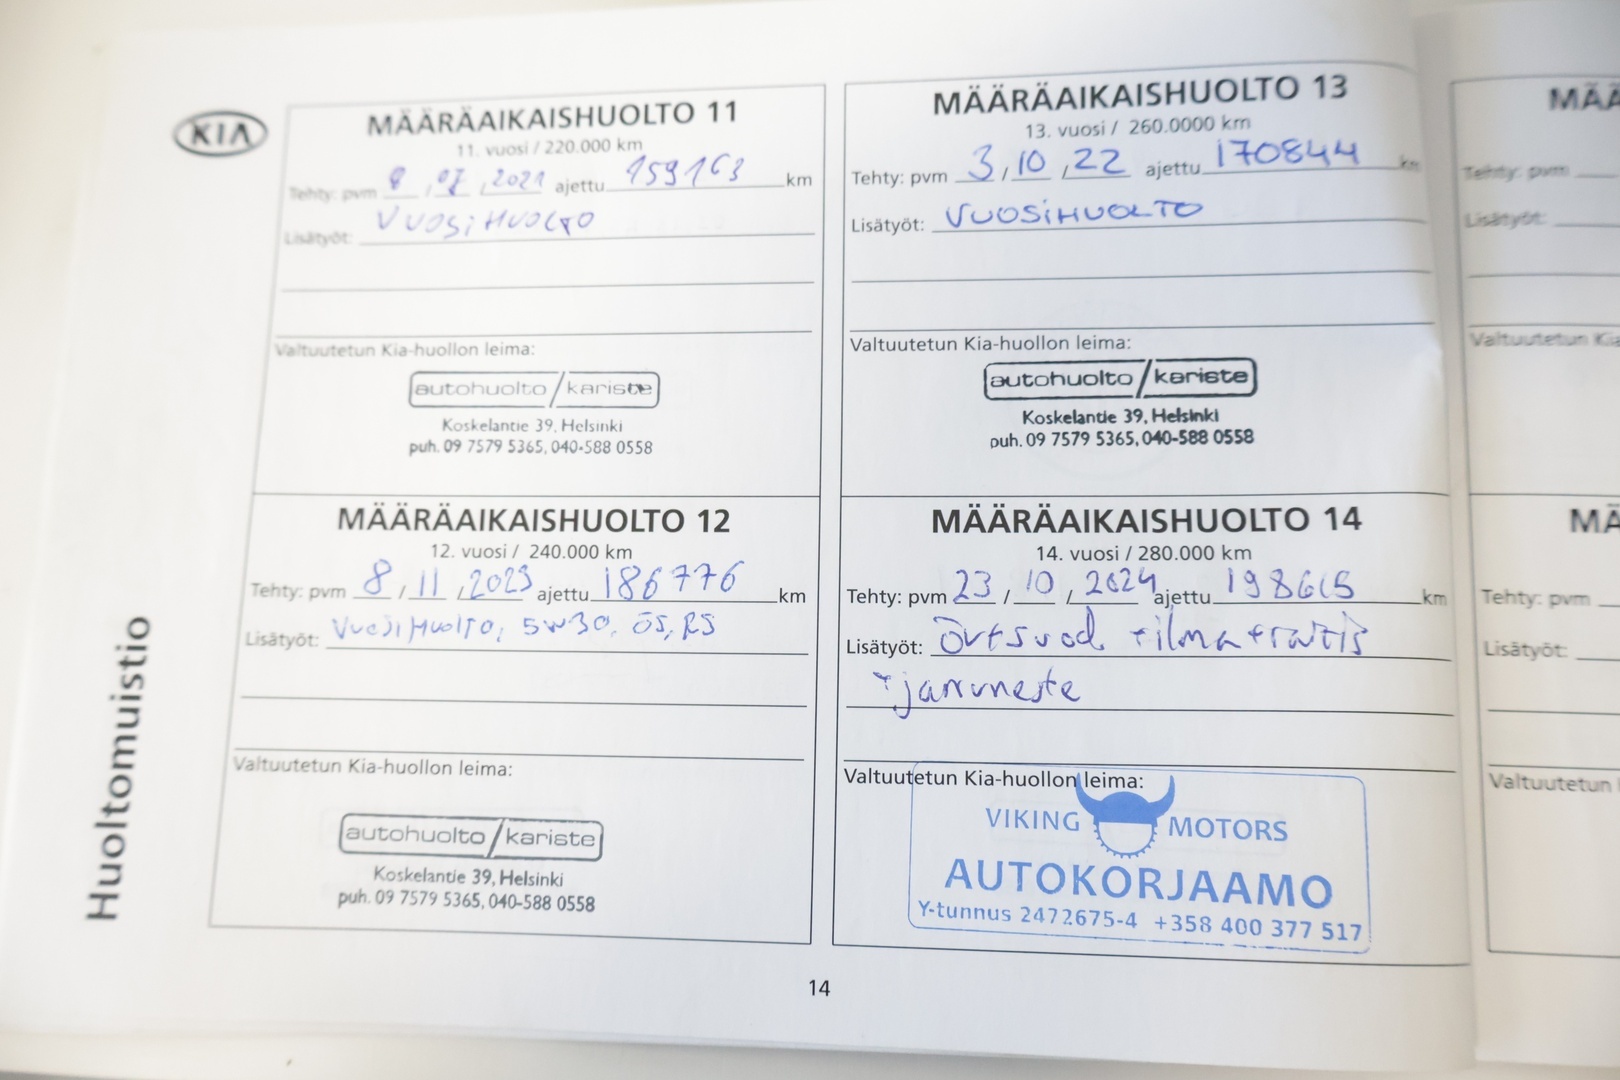 KIA
Huoltomuistio
MÄÄRÄAIKAISHUOLTO 11
11. vuosi / 220.000 km
Tehty: pvm 8 , 07 , 2021 ajettu 159163 km
Lisätyöt: VUOSiHUOLTO
Valtuutetun Kia-huollon leima:
autohuolto / kariste
Koskelantie 39, Helsinki
puh. 09 7579 5365, 040-588 0558
MÄÄRÄAIKAISHUOLTO 12
12. vuosi / 240.000 km
Tehty: pvm 8 / 11 , 2023 ajettu 186776 km
Lisätyöt: VuosiHuolto, 5w30, ÖS, RS
Valtuutetun Kia-huollon leima:
autohuolto / kariste
Koskelantie 39, Helsinki
puh. 09 7579 5365, 040-588 0558
MÄÄRÄAIKAISHUOLTO 13
13. vuosi / 260.0000 km
Tehty: pvm 3 / 10 , 22 ajettu 170844 km
Lisätyöt: VUOSiHUOLTO
Valtuutetun Kia-huollon leima:
autohuolto / kariste
Koskelantie 39, Helsinki
puh. 09 7579 5365, 040-588 0558
MÄÄRÄAIKAISHUOLTO 14
14. vuosi / 280.000 km
Tehty: pvm 23 / 10 / 2024 ajettu km
Lisätyöt:
+jarruneste
Valtuutetun Kia-huollon leima:
VIKING MOTORS
AUTOKORJAAMO
Y-tunnus 2472675-4 +358 400 377 517
14
MÄÄ
Tehty: pvm
Lisätyöt:
Valtuutetun Kia
MÄ
Tehty: pvm
Lisätyöt:
Valtuutetun